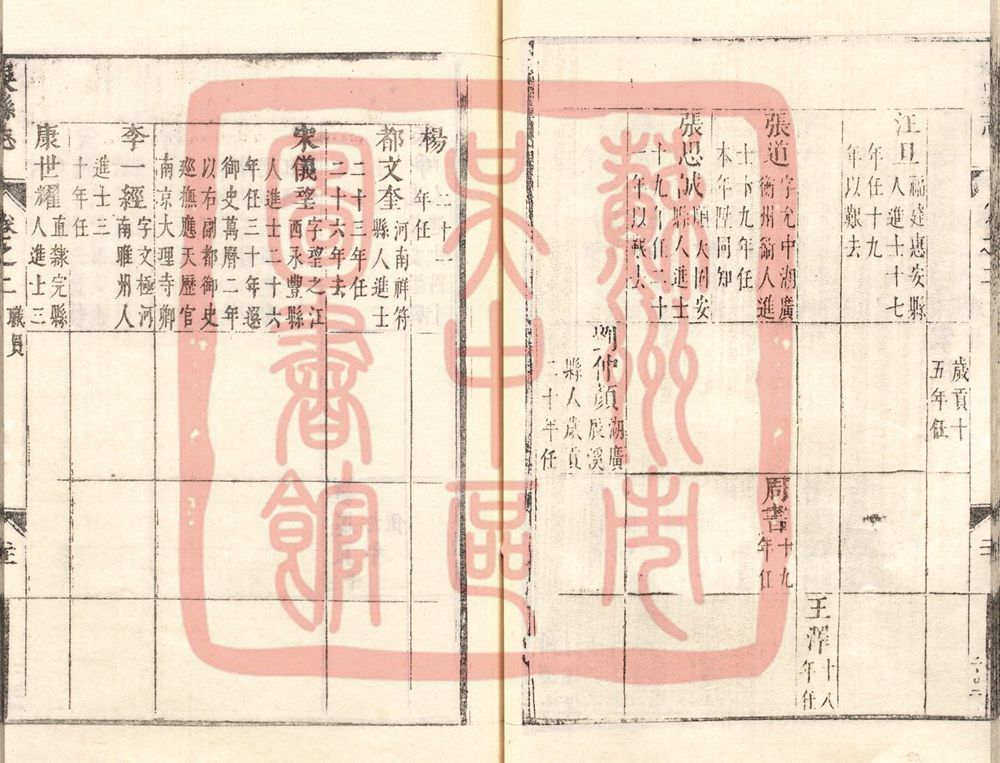 汪旦福建惠安縣
人進士十七
年任十九
年以艱去
歲貢十
五年任
王澤十八
年任
張道字允中湖廣
衡州衛人進
士十九年任
本年陞同知
周書十九
年任
張思誠順天固安
縣人進士
十九年任二十
一年以艱去
劉仲顏湖廣
辰溪
縣人歲貢
二十年任
楊二十一
年任
都文奎河南祥符
縣人進士
二十三年任
二十六年去
宋儀望字望之江
西永豐縣
人進士二十六
年任三十年選
御史萬曆二年
以右副都御史
廵撫應天歷官
南京大理寺卿
李一經字文極河
南睢州人
進士三
十年任
康世耀直隸完縣
人進士三
吳縣志
卷之二
職員
蘇州市
吳中區
圖書館